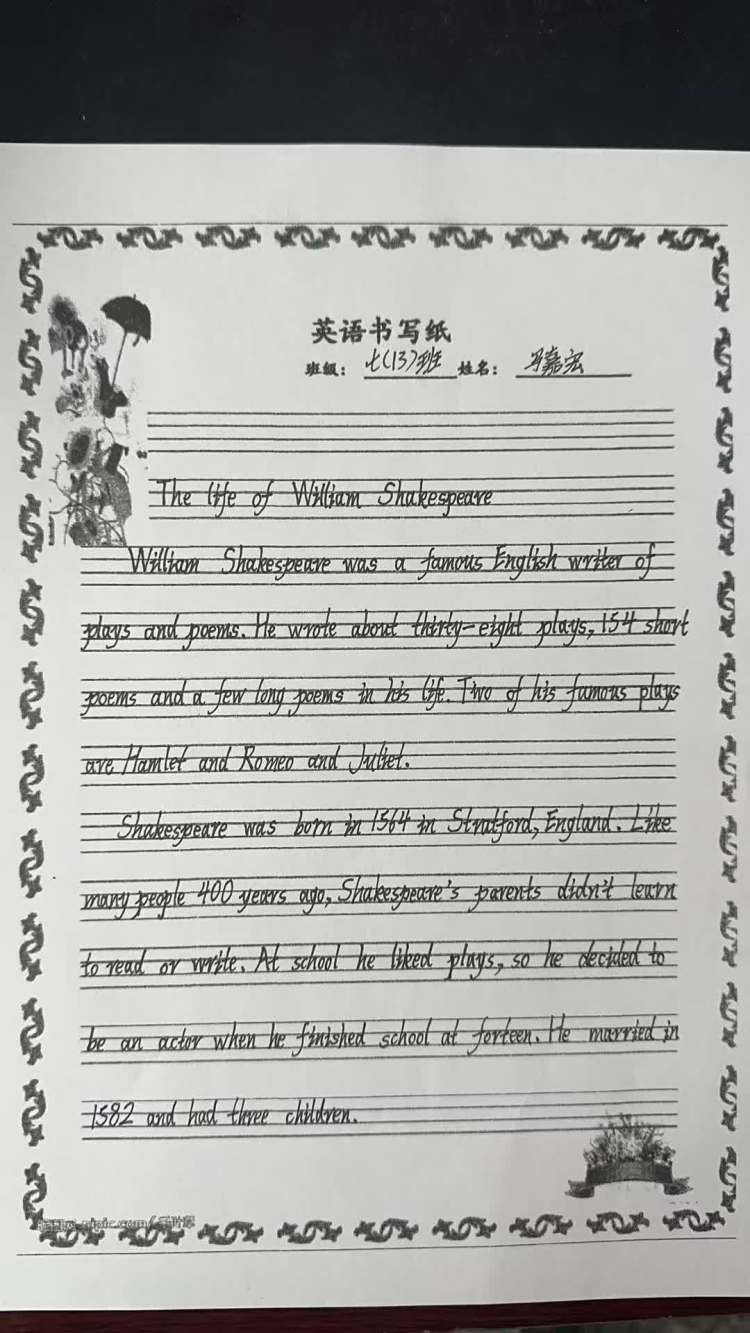 英语书写纸
班级: 七(13)班 姓名: 冯嘉宏
The life of William Shakespeare
William Shakespeare was a famous English writer of
plays and poems. He wrote about thirty-eight plays, 154 short
poems and a few long poems in his life. Two of his famous plays
are Hamlet and Romeo and Juliet.
Shakespeare was born in 1564 in Stratford, England. Like
many people 400 years ago, Shakespeare's parents didn't learn
to read or write. At school he liked plays, so he decided to
be an actor when he finished school at forteen. He married in
1582 and had three children.